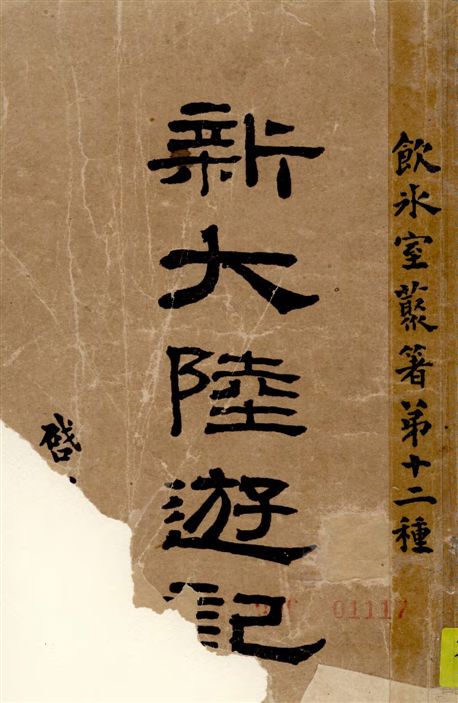 飲冰室叢著第十二種
新大陸遊記
啓
01117